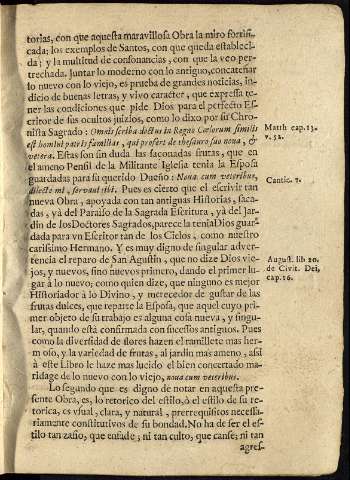 torias, con que aquesta maravillosa Obra la miro fortifi-
cada; los exemplos de Santos, con que queda estableci-
da; y la multitud de consonancias, con que la veo per-
trechada. Juntar lo moderno con lo antiguo, concatenar
lo nuevo con lo viejo, es prueba de grandes noticias, in-
dicio de buenas letras, y vivo caracter, que expressa te-
ner las condiciones que pide Dios para el perfecto Es-
critor de sus ocultos juizios, como lo dixo por su Chro-
nista Sagrado: Omnis scriba doctus in Regno Cælorum similis
est homini patri familias, qui profert de thesauro suo nova, &
vetera. Estas son sin duda las saçonadas frutas, que en
el ameno Pensil de la Militante Iglesia tenia la Esposa
guardadas para su querido Dueño: Nova cum veteribus,
dilecte mi, servavi tibi. Pues es cierto que el escrivir tan
nueva Obra, apoyada con tan antiguas Historias, saca-
das, yà del Paraìso de la Sagrada Escritura, yà del Jar-
din de los Doctores Sagrados, parece la tenia Dios guar-
dada para un Escritor tan de los Cielos, como nuestro
carissimo Hermano. Y es muy digno de singular adver-
tencia el reparo de San Agustin, que no dize Dios vie-
jos, y nuevos, sino nuevos primero, dando el primer lu-
gar à lo nuevo; como quien dize, que ninguno es mejor
Historiador à lo Divino, y merecedor de gustar de las
frutas dulces, que reparte la Esposa, que aquel cuyo pri-
mer objeto de su trabajo es alguna cosa nueva, y singu-
lar, quando està confirmada con sucessos antiguos. Pues
como la diversidad de flores hazen el ramillete mas her-
moso, y la variedad de frutas, al jardin mas ameno, assi
à este Libro le haze mas lucido el bien concertado ma-
ridage de lo nuevo con lo viejo, nova cum veteribus.
Lo segundo que es digno de notar en aquesta pre-
sente Obra, es, lo retorico del estilo, ò el estilo de su re-
torica, es vsual, clara, y natural, prerrequisitos necessa-
riamente constitutivos de su bondad. No ha de ser el es-
tilo tan zafio, que enfade; ni tan culto, que canse; ni tan
agres-
Matth cap. 13.
v. 52.
Cantic. 7.
August. lib 20.
de Civit. Dei,
cap. 16.